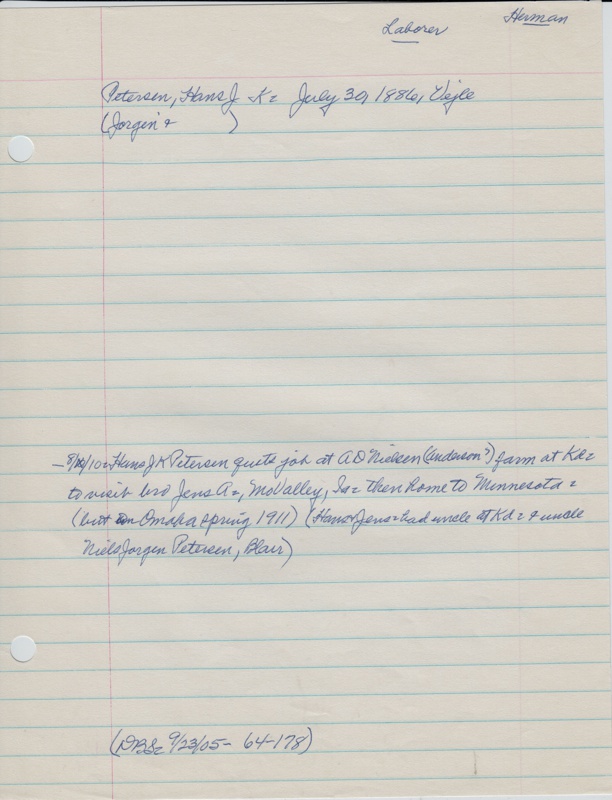 Laborer
Herman
Petersen, Hans J K= July 30, 1886, Vejle
(Jorgen & )
- 8/10/10= Hans J K Petersen quits job at A D Nielsen (Anderson?) farm at Kd=
to visit bro Jens A=, MoValley, Ia= then home to Minnesota=
(but in Omaha spring 1911) (Hans & Jens= had uncle at Kd= & uncle
Niels Jorgen Petersen, Blair)
(DBS= 9/23/05- 64-178)